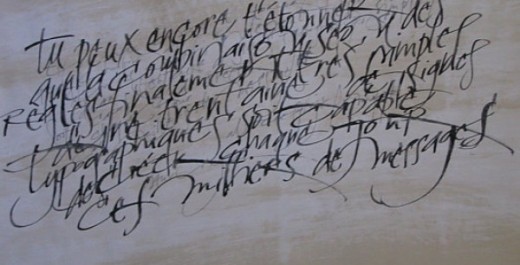 Tu peux encore t'étonner
que la combinaison selon des
Règles finalement très simples
d'une trentaine de signes
typographiques soit capable
de créer chaque jour
ces milliers de messages